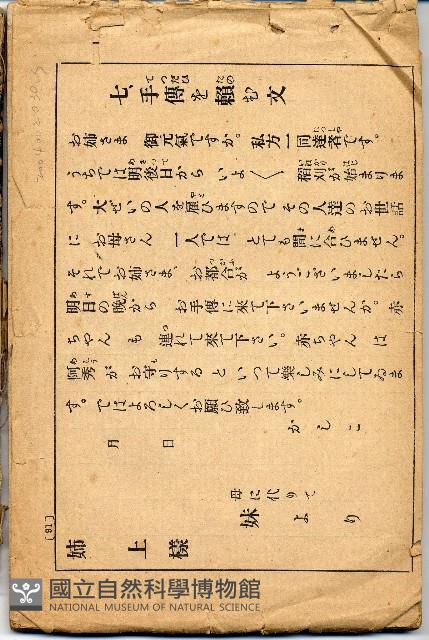 七、手傳を頼む文
お姉さま　御元氣ですか。私方一同達者です。
うちでは明後日から　いよ〳〵　稻刈が始まりま
す。大ぜいの人を雇ひますので　その人達のお世話
に　お母さん　一人では　とても間に合ひません。
それでお姉さま、お都合が　よろしうございましたら
明日の晩から　お手傳に來て下さいませんか。赤
ちやん　も　連れて來て下さい。赤ちやん　は
阿秀が　お守りする　といつて樂しみにしてゐま
す。ではよろしくお願ひ致します。
かしこ
月　日
母に代りて
妹　より
姉　上　樣
[91]
國立自然科學博物館
NATIONAL MUSEUM OF NATURAL SCIENCE